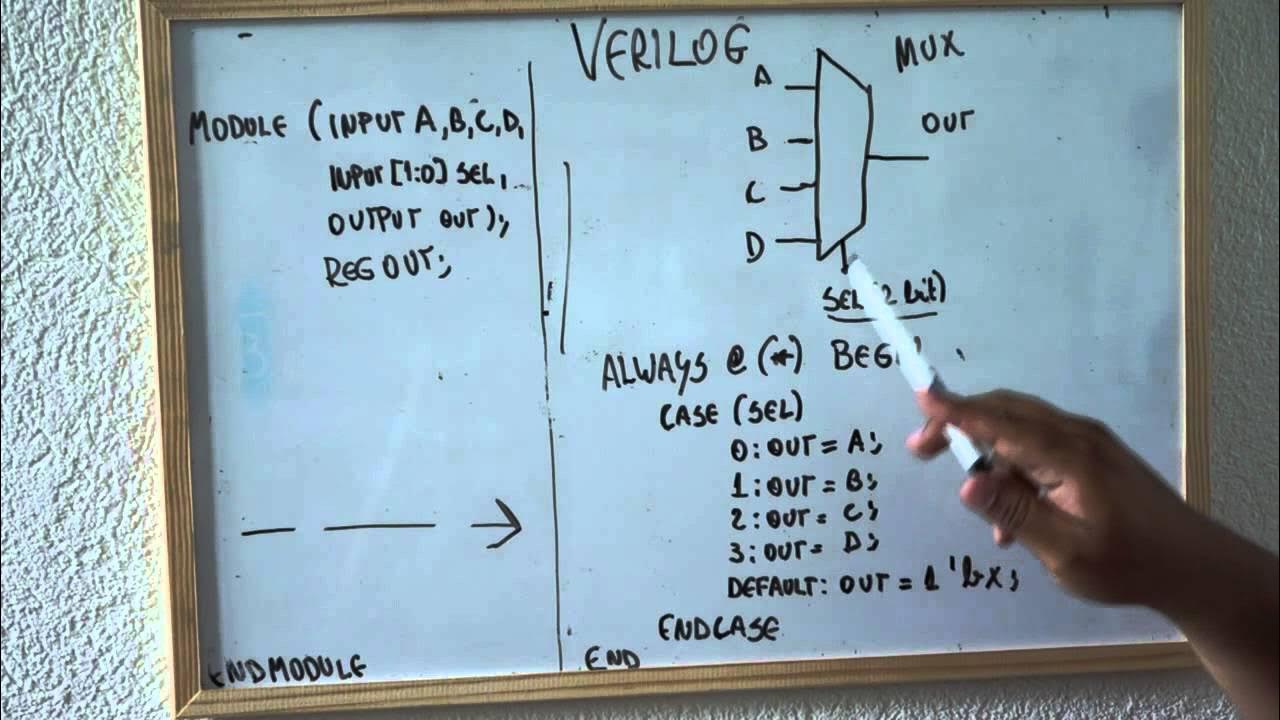 VERILOG
MODULE (INPUT A,B,C,D,
INPUT [1:0] SEL,
OUTPUT OUT);
REG OUT;
ENDMODULE
MUX
A
B
C
D
OUT
SEL (2 bit)
ALWAYS @ (*) BEGIN
CASE (SEL)
0: OUT = A;
1: OUT = B;
2: OUT = C;
3: OUT = D;
DEFAULT: OUT = 1'bX;
ENDCASE
END